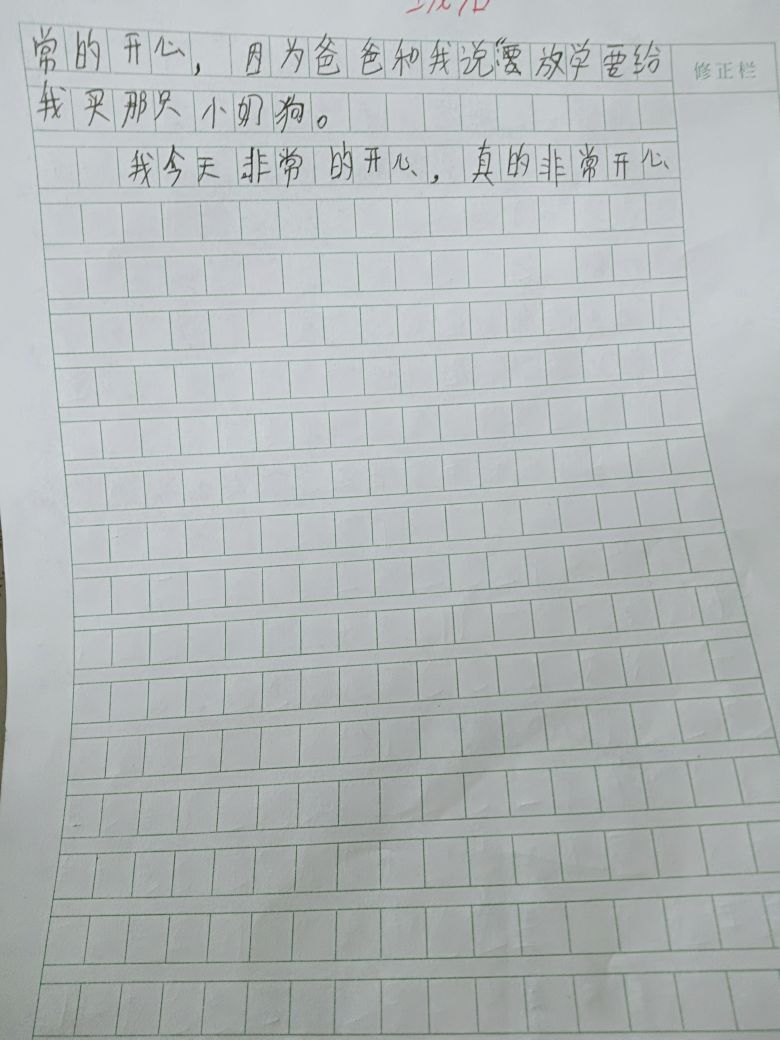 常的开心，因为爸爸和我说放学要给
修正栏
我买那只小奶狗。
我今天非常的开心，真的非常开心